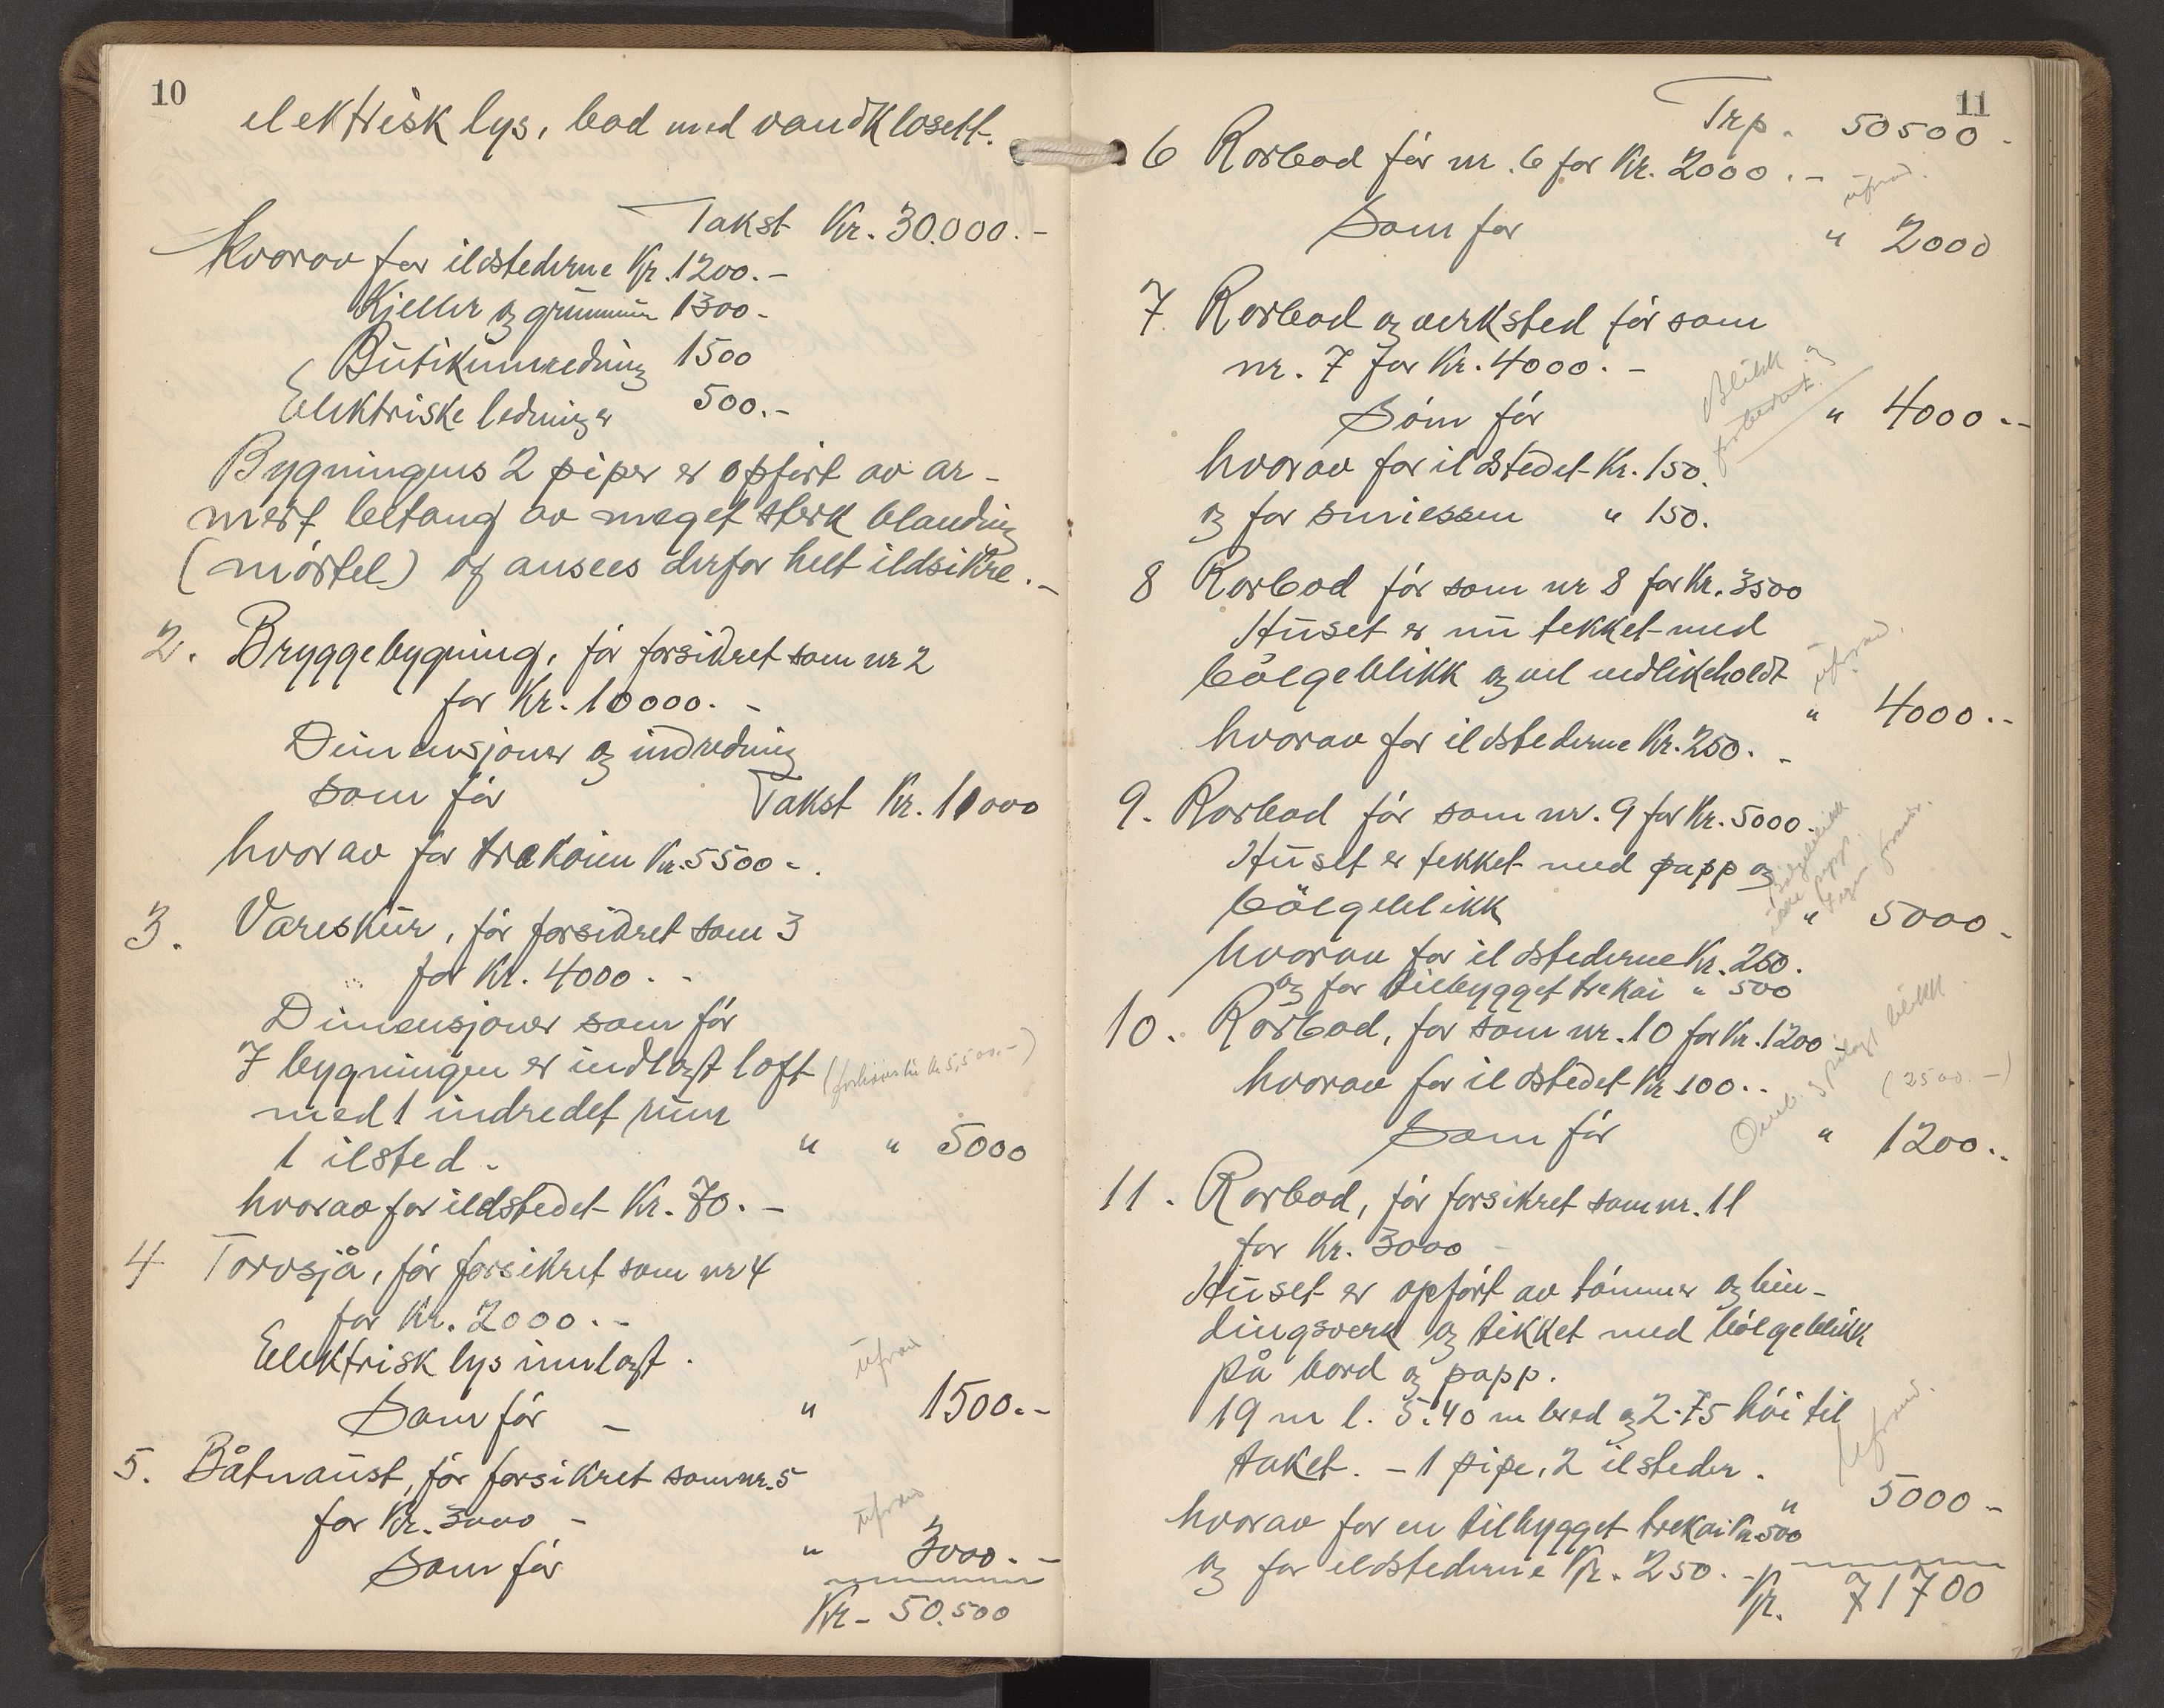 10
elektrisk lys, bad med vandklosett.
Takst Kr. 30.000.-
Hvorav for ildstederne Kr. 1200.-
Kjeller og grunnmur 1300-
Butikinnredning 1500
Elektriske ledninger 500.-
Bygningens 2 piper er opført av ar-
mert betong av meget sterk blanding
(mørtel) og ansees derfor helt ildsikre.-
2. Bryggebygning, før forsikret som nr 2
for Kr. 10000.-
Dimensjoner og indredning
som før Takst Kr. 10000
hvorav for trekaien Kr. 5500-.
3. Vareskur, før forsikret som 3
for Kr. 4000.-
Dimensjoner som før
I bygningen er indlagt loft (forhøies til Kr 5,500.-)
med 1 indredet rum
1 ilsted. " " 5000
hvorav for ildstedet Kr. 70.-
4 Torvsjå, før forsikret som nr 4
for Kr. 2000.-
Elektrisk lys innlagt.
ufran
Som før - " 1500.-
5. Båtnaust, før forsikret som nr. 5
for Kr. 3000 -
ufran
Som før " 3000.-
Kr- 50.500
11
Trp. 50500-
6 Rorbod før nr. 6 for Kr. 2000.-
Som før " 2000
7 Rorbod og verksted før som
nr. 7 for Kr. 4000.-
Blikk
Som før " 4000.-
hvorav for ildstedet Kr. 150.
og for smiessen " 150.
8 Rorbod før som nr 8 for Kr. 3500
Huset er nu tekket med
bølgeblikk og vel vedlikeholdt
" 4000.-
hvorav for ildstederne Kr. 250.-
9. Rorbod før som nr. 9 for Kr. 5000.
Huset er tekket med papp og
bølgeblikk " 5000-
hvorav for ildstederne Kr. 250.
og for tilbygget trekai " 500
10. Rorbod, før som nr. 10 for Kr. 1200-
hvorav for ildstedet Kr 100.. (2500.-)
Som før " 1200..
11. Rorbod, før forsikret som nr. 11
for Kr. 3000
Huset er opført av tømmer og bin-
dingsverk og tekket med bølgeblikk
på bord og papp.
19 m l. 5.40 m bred og 2.75 høi til
taket. - 1 pipe, 2 ilsteder.
" 5000-
hvorav for en tilbygget trekai Kr 500
og for ildstederne Kr. 250.-
Kr. 71700